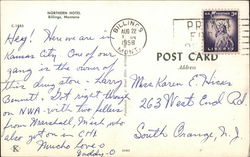 NORTHERN HOTEL
Billings, Montana
BILLINGS
AUG 22
1958
MONT.
POST CARD
Address
Hey! Here we are in
Kansas City. One of our
gang is the owner of
this drug store - Harry
Bennett. Got right though
on NWA - with two fellers
from Marshall, Mich. who
also got on in CHI.
Much love
Daddy-O
Miss Karen C. Hicks
263 West End Rd
South Orange, N.J.